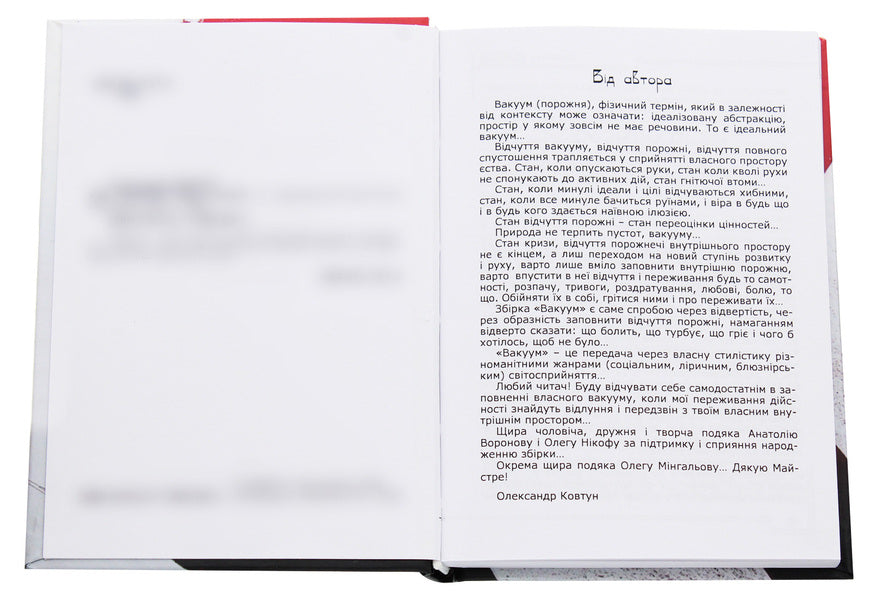 Від автора
Вакуум (порожня), фізичний термін, який в залежності
від контексту може означати: ідеалізовану абстракцію,
простір у якому зовсім не має речовини. То є ідеальний
вакуум...
Відчуття вакууму, відчуття порожні, відчуття повного
спустошення трапляється у сприйнятті власного простору
єства. Стан, коли опускаються руки, стан коли кволі рухи
не спонукають до активних дій, стан гнітючої втоми...
Стан, коли минулі ідеали і цілі відчуваються хибними,
стан, коли все минуле бачиться руїнами, і віра в будь що
і в будь кого здається наївною ілюзією.
Стан відчуття порожні – стан переоцінки цінностей...
Природа не терпить пустот, вакууму...
Стан кризи, відчуття порожнечі внутрішнього простору
не є кінцем, а лиш переходом на новий ступінь розвитку
і руху, варто лише вміло заповнити внутрішню порожню,
варто впустити в неї відчуття і переживання будь то самот-
ності, розпачу, тривоги, роздратування, любові, болю, то
що. Обійняти їх в собі, грітися ними і про переживати їх...
Збірка «Вакуум» є саме спробою через відвертість, че-
рез образність заповнити відчуття порожні, намаганням
відверто сказати: що болить, що турбує, що гріє і чого б
хотілось, щоб не було...
«Вакуум» – це передача через власну стилістику різ-
номанітними жанрами (соціальним, ліричним, блюзнірсь-
ким) світосприйняття...
Любий читач! Буду відчувати себе самодостатнім в за-
повненні власного вакууму, коли мої переживання дійс-
ності знайдуть відлуння і передзвін з твоїм власним вну-
трішнім простором...
Щира чоловіча, дружня і творча подяка Анатолію
Воронову і Олегу Нікофу за підтримку і сприяння народ-
женню збірки...
Окрема щира подяка Олегу Мінгальову... Дякую Май-
стре!
Олександр Ковтун